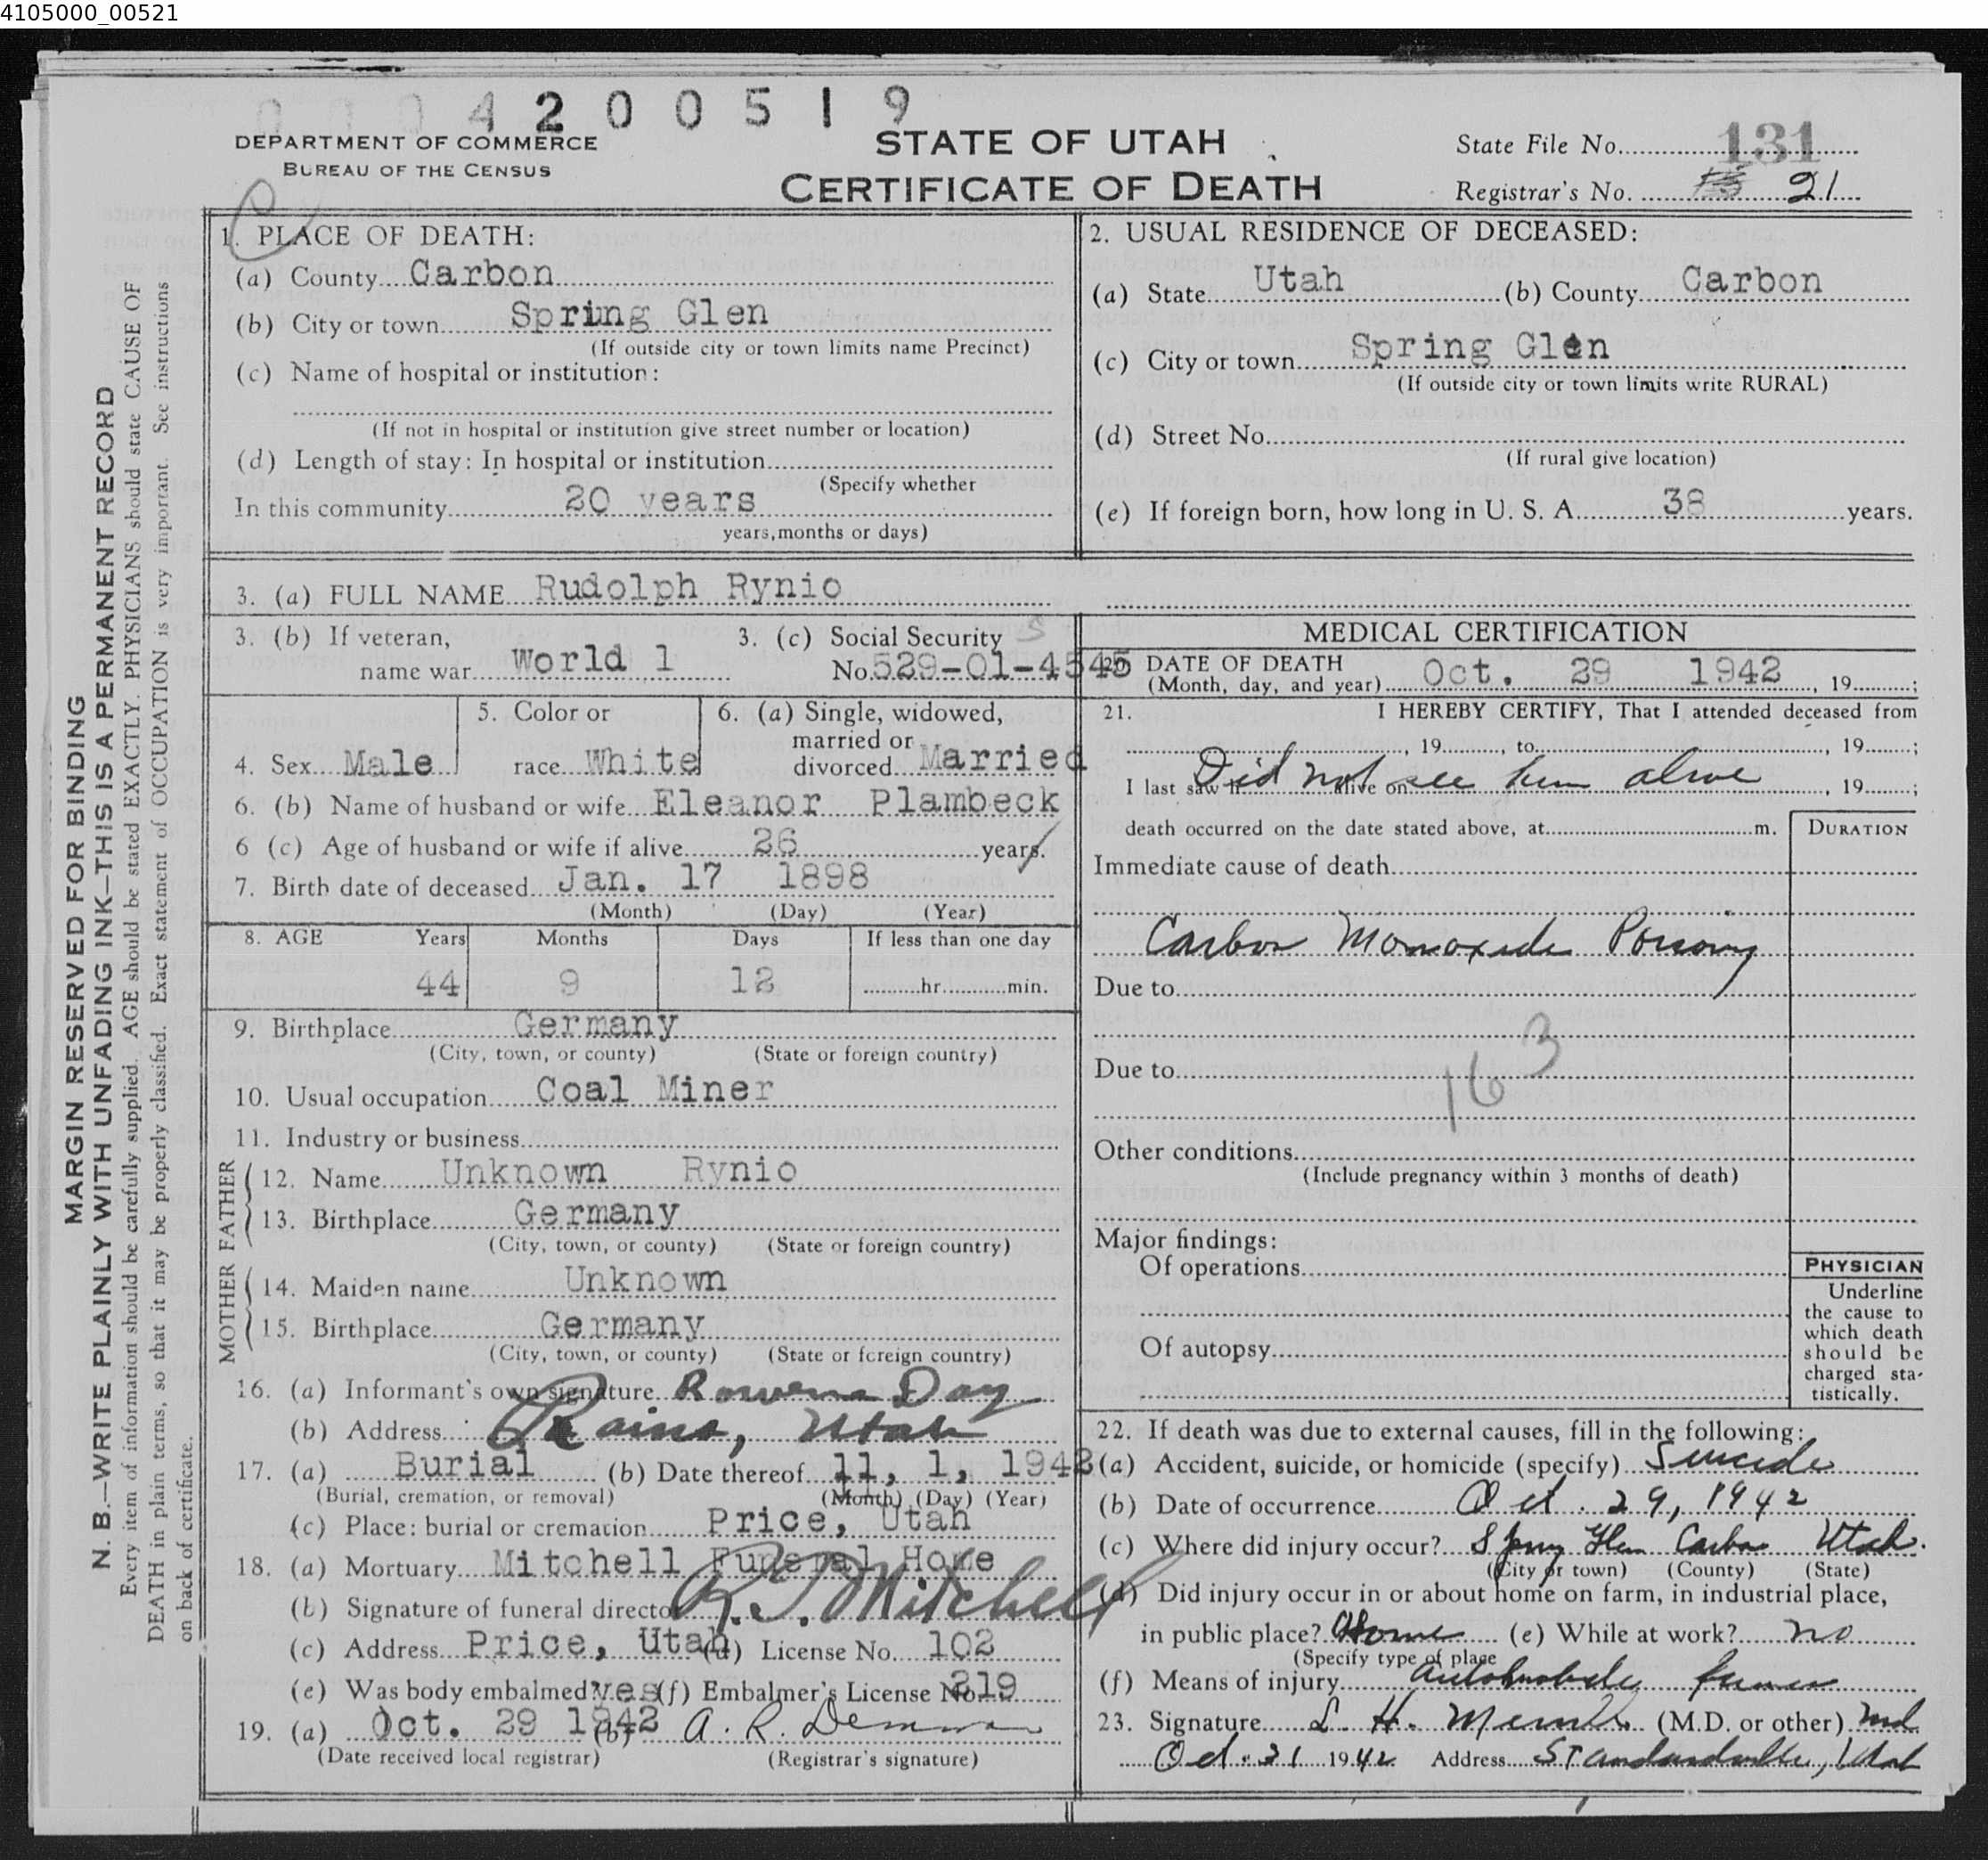 4105000_00521
0 0 0 4 2 0 0 5 1 9
DEPARTMENT OF COMMERCE
BUREAU OF THE CENSUS
STATE OF UTAH
CERTIFICATE OF DEATH
State File No. 131
Registrar's No. 21
MARGIN RESERVED FOR BINDING
N. B.—WRITE PLAINLY WITH UNFADING INK—THIS IS A PERMANENT RECORD
Every item of information should be carefully supplied. AGE should be stated EXACTLY. PHYSICIANS should state CAUSE OF
DEATH in plain terms, so that it may be properly classified. Exact statement of OCCUPATION is very important. See instructions
on back of certificate.
1. PLACE OF DEATH:
(a) County Carbon
(b) City or town Spring Glen
(If outside city or town limits name Precinct)
(c) Name of hospital or institution:
(If not in hospital or institution give street number or location)
(d) Length of stay: In hospital or institution
(Specify whether
In this community 20 years
years, months or days)
2. USUAL RESIDENCE OF DECEASED:
(a) State Utah (b) County Carbon
(c) City or town Spring Glen
(If outside city or town limits write RURAL)
(d) Street No.
(If rural give location)
(e) If foreign born, how long in U. S. A. 38 years.
3. (a) FULL NAME Rudolph Rynio
3. (b) If veteran, name war World 1
3. (c) Social Security No. 529-01-4545
4. Sex Male
5. Color or race White
6. (a) Single, widowed, married or divorced Married
6. (b) Name of husband or wife Eleanor Plambeck
6 (c) Age of husband or wife if alive 26 years.
7. Birth date of deceased Jan. 17 1898
(Month) (Day) (Year)
8. AGE Years Months Days If less than one day
44 9 12 hr. min.
9. Birthplace Germany
(City, town, or county) (State or foreign country)
10. Usual occupation Coal Miner
11. Industry or business
FATHER
12. Name Unknown Rynio
13. Birthplace Germany
(City, town, or county) (State or foreign country)
MOTHER
14. Maiden name Unknown
15. Birthplace Germany
(City, town, or county) (State or foreign country)
16. (a) Informant's own signature Rowena Day
(b) Address Rains, Utah
17. (a) Burial (b) Date thereof 11, 1, 1942
(Burial, cremation, or removal) (Month) (Day) (Year)
(c) Place: burial or cremation Price, Utah
18. (a) Mortuary Mitchell Funeral Home
(b) Signature of funeral director Mitchell
(c) Address Price, Utah (d) License No. 102
(e) Was body embalmed? yes (f) Embalmer's License No. 219
19. (a) Oct. 29 1942 (b) A. R. Demman
(Date received local registrar) (Registrar's signature)
MEDICAL CERTIFICATION
20. DATE OF DEATH
(Month, day, and year) Oct. 29 1942, 19 ;
21. I HEREBY CERTIFY, That I attended deceased from
, 19 , to , 19 ;
I last saw h alive on , 19 ;
Did not see him alive
death occurred on the date stated above, at m.
DURATION
Immediate cause of death
Carbon Monoxide
Due to
Due to
163
Other conditions
(Include pregnancy within 3 months of death)
Major findings:
Of operations
Of autopsy
PHYSICIAN
Underline
the cause to
which death
should be
charged sta-
tistically.
22. If death was due to external causes, fill in the following:
(a) Accident, suicide, or homicide (specify) Suicide
(b) Date of occurrence Oct. 29, 1942
(c) Where did injury occur? Spring Glen Carbon Utah.
(City or town) (County) (State)
(d) Did injury occur in or about home on farm, in industrial place,
in public place? Home (e) While at work? no
(Specify type of place
(f) Means of injury automobile fumes
23. Signature L. H. (M.D. or other) Md.
Oct. 31 1942 Address Standardville, Utah